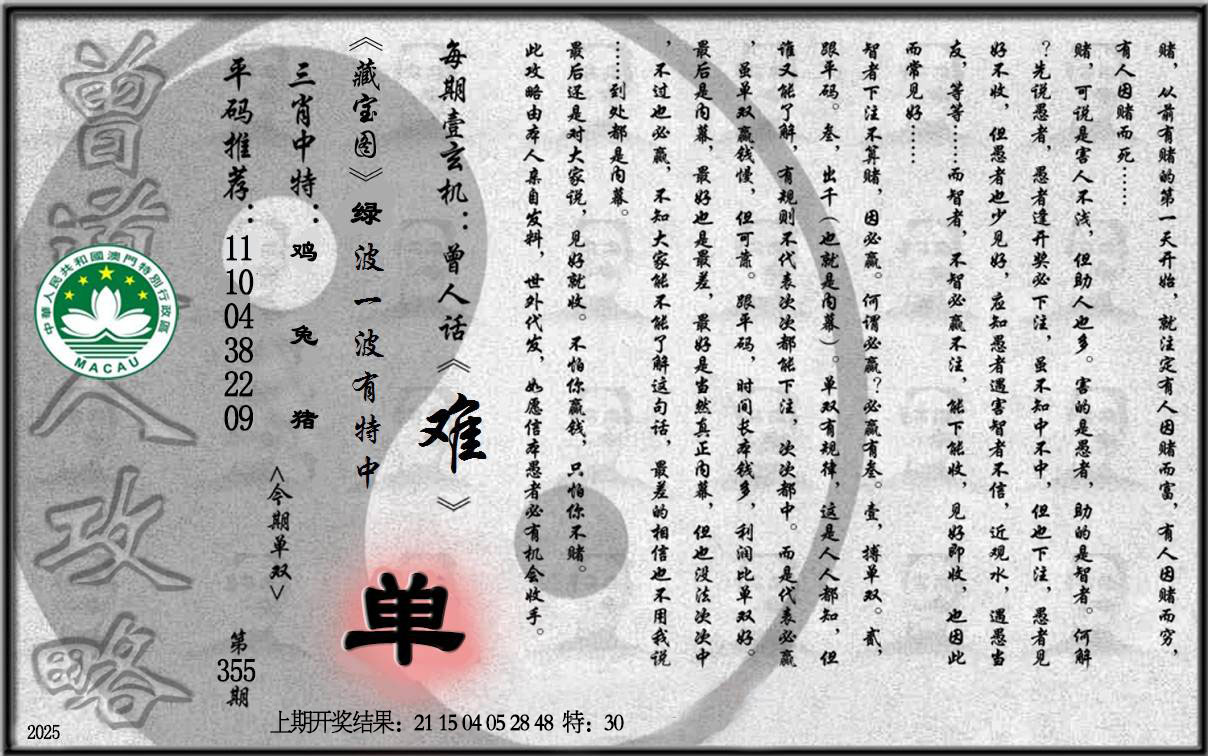 赌，从前有赌的第一天开始，就注定有人因赌而富，有人因赌而穷，
有人因赌而死……
赌，可说是害人不浅，但助人也多。害的是愚者，助的是智者。何解
？先说愚者，愚者逢开奖必下注，虽不知中不中，但也下注，愚者见
好不收，但愚者也少见好，应知愚者遇害智者不信，近观水，遇愚当
友，等等……而智者，不智必赢不注，能下能收，见好即收，也因此
而常见好……
智者下注不算赌，因必赢。何谓必赢？必赢有叁。壹，搏单双。贰，
跟平码。叁，出千（也就是内幕）。单双有规律，这是人人都知，但
谁又能了解，有规则不代表次次都能下注，次次都中。而是代表必赢
，虽单双赢钱慢，但可靠。跟平码，时间长本钱多，利润比单双好。
最后是内幕，最好也是最差，最好是当然真正内幕，但也没法次次中
，不过也必赢，不知大家能不能了解这句话，最差的相信也不用我说
……到处都是内幕。
最后还是对大家说，见好就收。不怕你赢钱，只怕你不赌。
此攻略由本人亲自发料，世外代发，如愿信本愚者必有机会收手。
每期壹玄机：曾人话《难》
《藏宝图》绿波一波有特中
单
三肖中特：鸡兔猪
<今期单双>
平码推荐：11 10 04 38 22 09
第355期
曾道人攻略
中華人民共和國澳門特別行政區
MACAU
上期开奖结果：21 15 04 05 28 48 特：30
2025